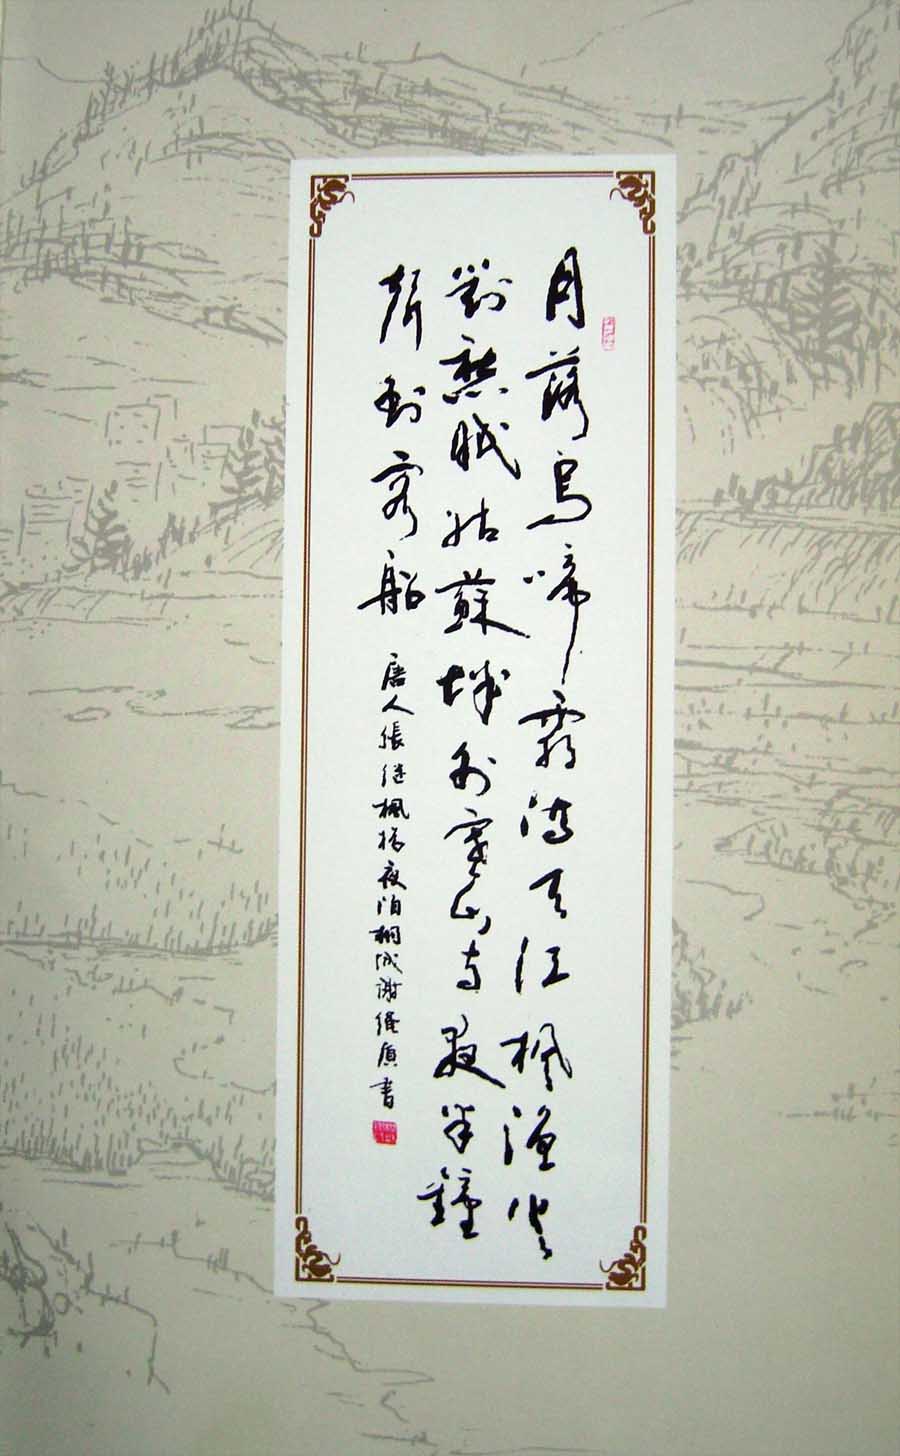 月落烏啼霜滿天江楓漁火
對愁眠姑蘇城外寒山寺夜半鐘
聲到客船
唐人張继楓橋夜泊桐城謝書